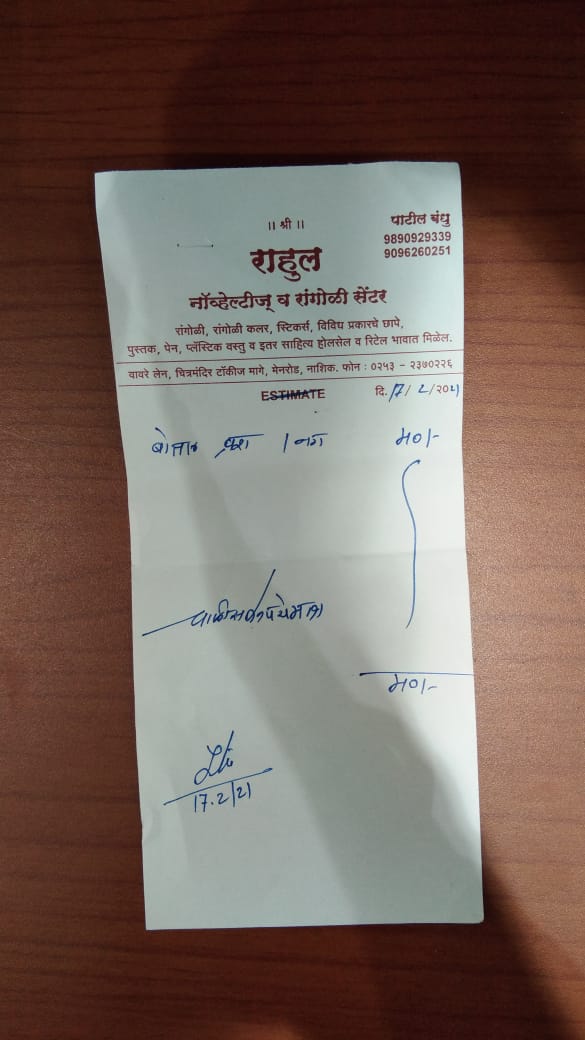 ॥ श्री ॥
पाटील बंधु
9890929339
9096260251
राहुल
नॉव्हेल्टीज् व रांगोळी सेंटर
रांगोळी, रांगोळी कलर, स्टिकर्स, विविध प्रकारचे छापे,
पुस्तक, पेन, प्लॅस्टिक वस्तु व इतर साहित्य होलसेल व रिटेल भावात मिळेल.
वावरे लेन, चित्रमंदिर टॉकीज मागे, मेनरोड, नाशिक. फोन : ०२५३ - २३७०२२६
ESTIMATE
दि. 17/2/2021
ब्रश 1 नग
17.2/21